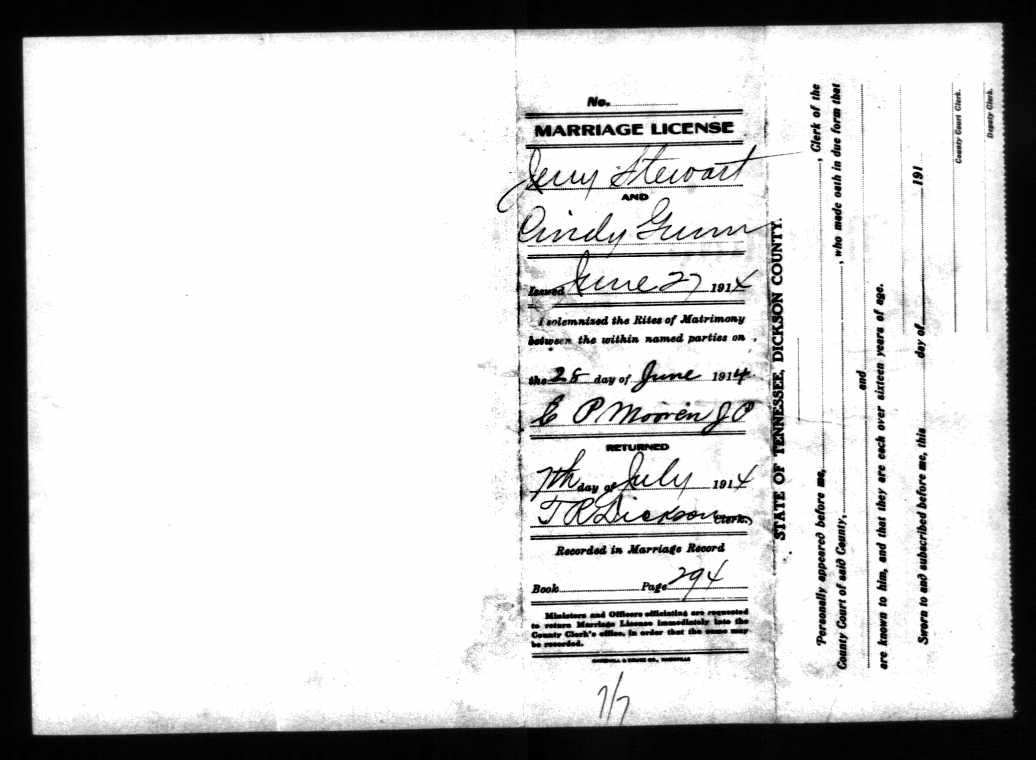 No.
MARRIAGE LICENSE
Jerry Stewart
AND
Cindy Gunn
Issued June 27 1914
I solemnized the Rites of Matrimony
between the within named parties on
the 28 day of June 1914
E P Mooren J P
RETURNED
7th day of July 1914
T R Dickson Clerk.
Recorded in Marriage Record
Book Page 294
Ministers and Officers officiating are requested
to return Marriage License immediately into the
County Clerk's office, in order that the same may
be recorded.
7/7
STATE OF TENNESSEE, DICKSON COUNTY.
Personally appeared before me, , Clerk of the
County Court of said County, , who made oath in due form that
and
are known to him, and that they are each over sixteen years of age.
Sworn to and subscribed before me, this day of 191
County Court Clerk.
Deputy Clerk.